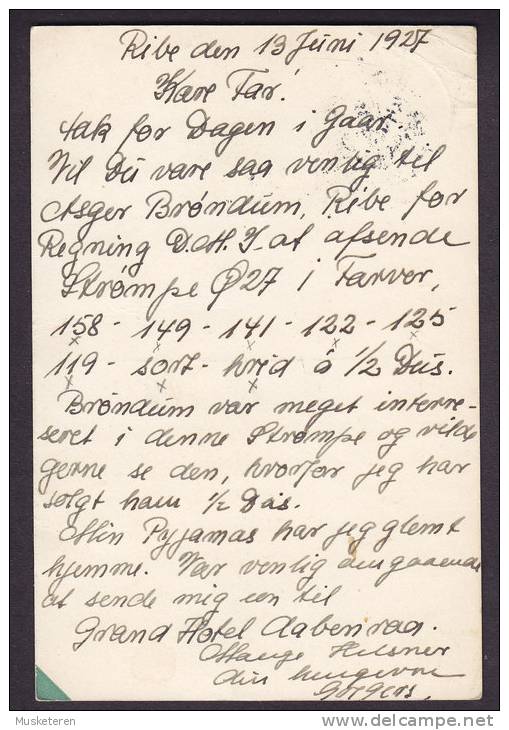 Ribe den 13 Juni 1927
Kære Far!
tak for Dagen i Gaar.
Vil Du være saa venlig til
Asger Brøndum, Ribe for
Regning D.M.J. at afsende
Strømpe Ø27 i Farver,
158 - 149 - 141 - 122 - 125
x x x x
119 - sort - hvid à 1/2 Dus.
x x x
Brøndum var meget interre-
seret i denne Strømpe og vilde
gerne se den, hvorfor jeg har
solgt ham 1/2 Dus.
Min Pyjamas har jeg glemt
hjemme. Vær venlig omgaaende
at sende mig een til
Grand Hotel Aabenraa.
Mange Hilsner
din hengivne
Musketeren
delcampe.net